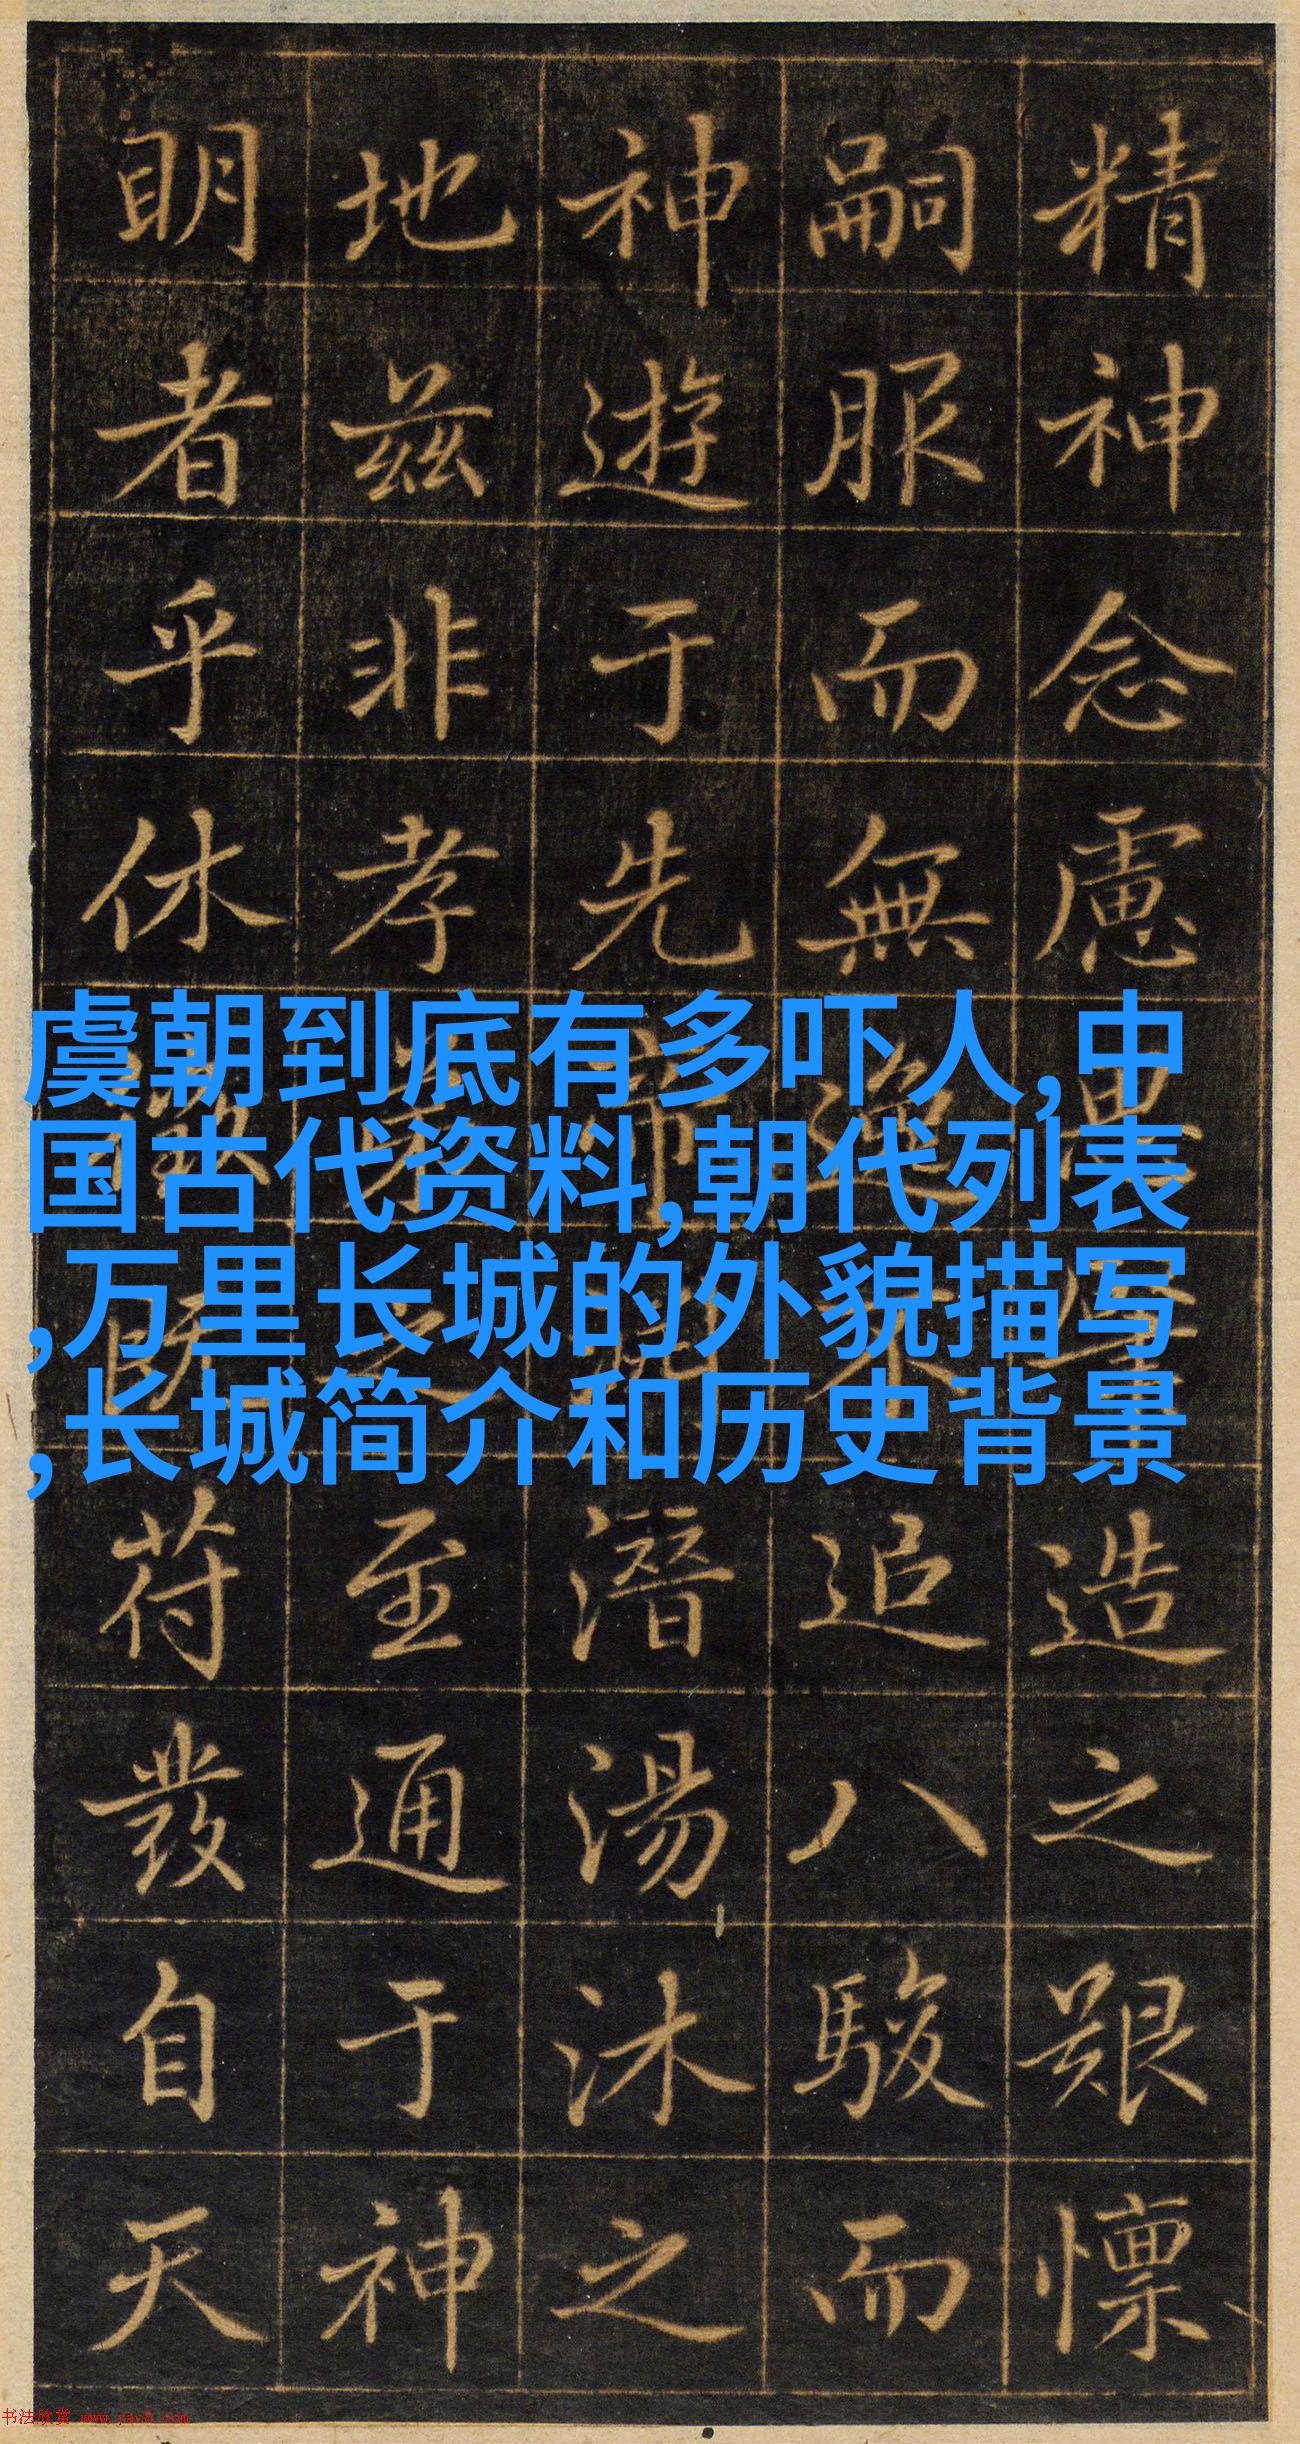 精神念慮造之艱懍
嗣服而無逸不追八駿而
神遊于先帝潛湯沐之
地兹非孝思之至通于神
明者乎休徵既苻發自天
虞朝到底有多吓人,中
国古代资料,朝代列表
,万里长城的外貌描写
,长城简介和历史背景
书法欣赏 www.yac8.com